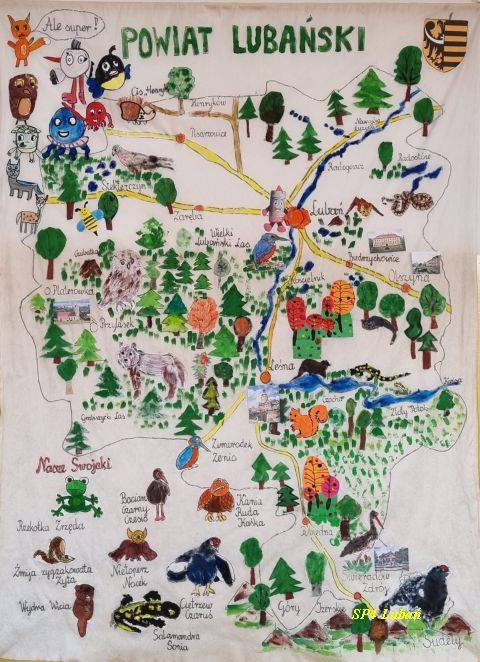 Ale super!
POWIAT LUBAŃSKI
Cis Henryk
Henryków
Pisarzowice
Radogoszcz
Radostów
Siekierczyn
Zaręba
Lubań
Wielki
Lubański Las
Biedrzychowice
Olszyna
Kościelnik
Platerówka
Przylasek
Leśna
Czocha
Złoty Potok
Zimorodek
Zenia
Nasze Swojaki
Rzekotka Zrzęda
Bocian
Czarny
Czesio
Kania
Ruda
Kaśka
Żmija zygzakowata
Zyta
Nietoperz
Nocek
Wydra Wicia
Salamandra
Sonia
Cietrzew
Czaruś
Świeradów
Zdrój
Góry Izerskie
SP4 Lubań
Sudety